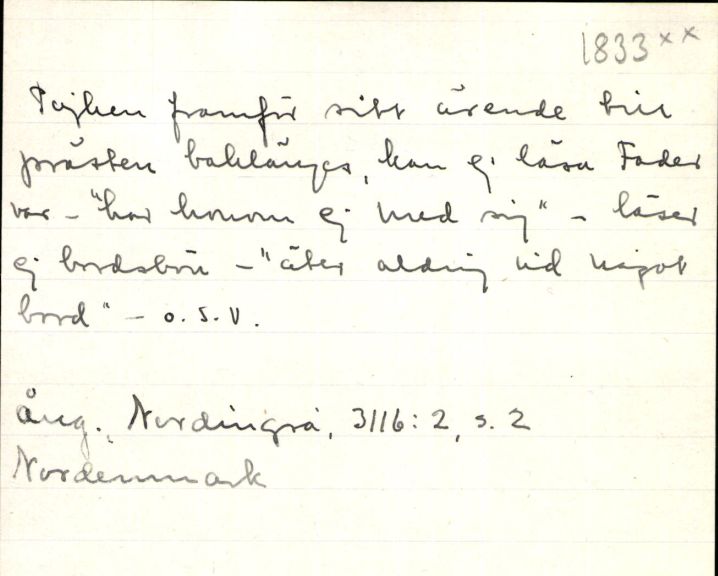 1833xx
Pojken framför sitt ärende till
prästen baklänges, kan ej läsa Fader
vår - "har honom ej med sig" - läser
ej bordsbön - "äter aldrig vid något
bord" - o.s.v.
Ång., Nordingrå, 3116:2, s. 2
Nordenmark